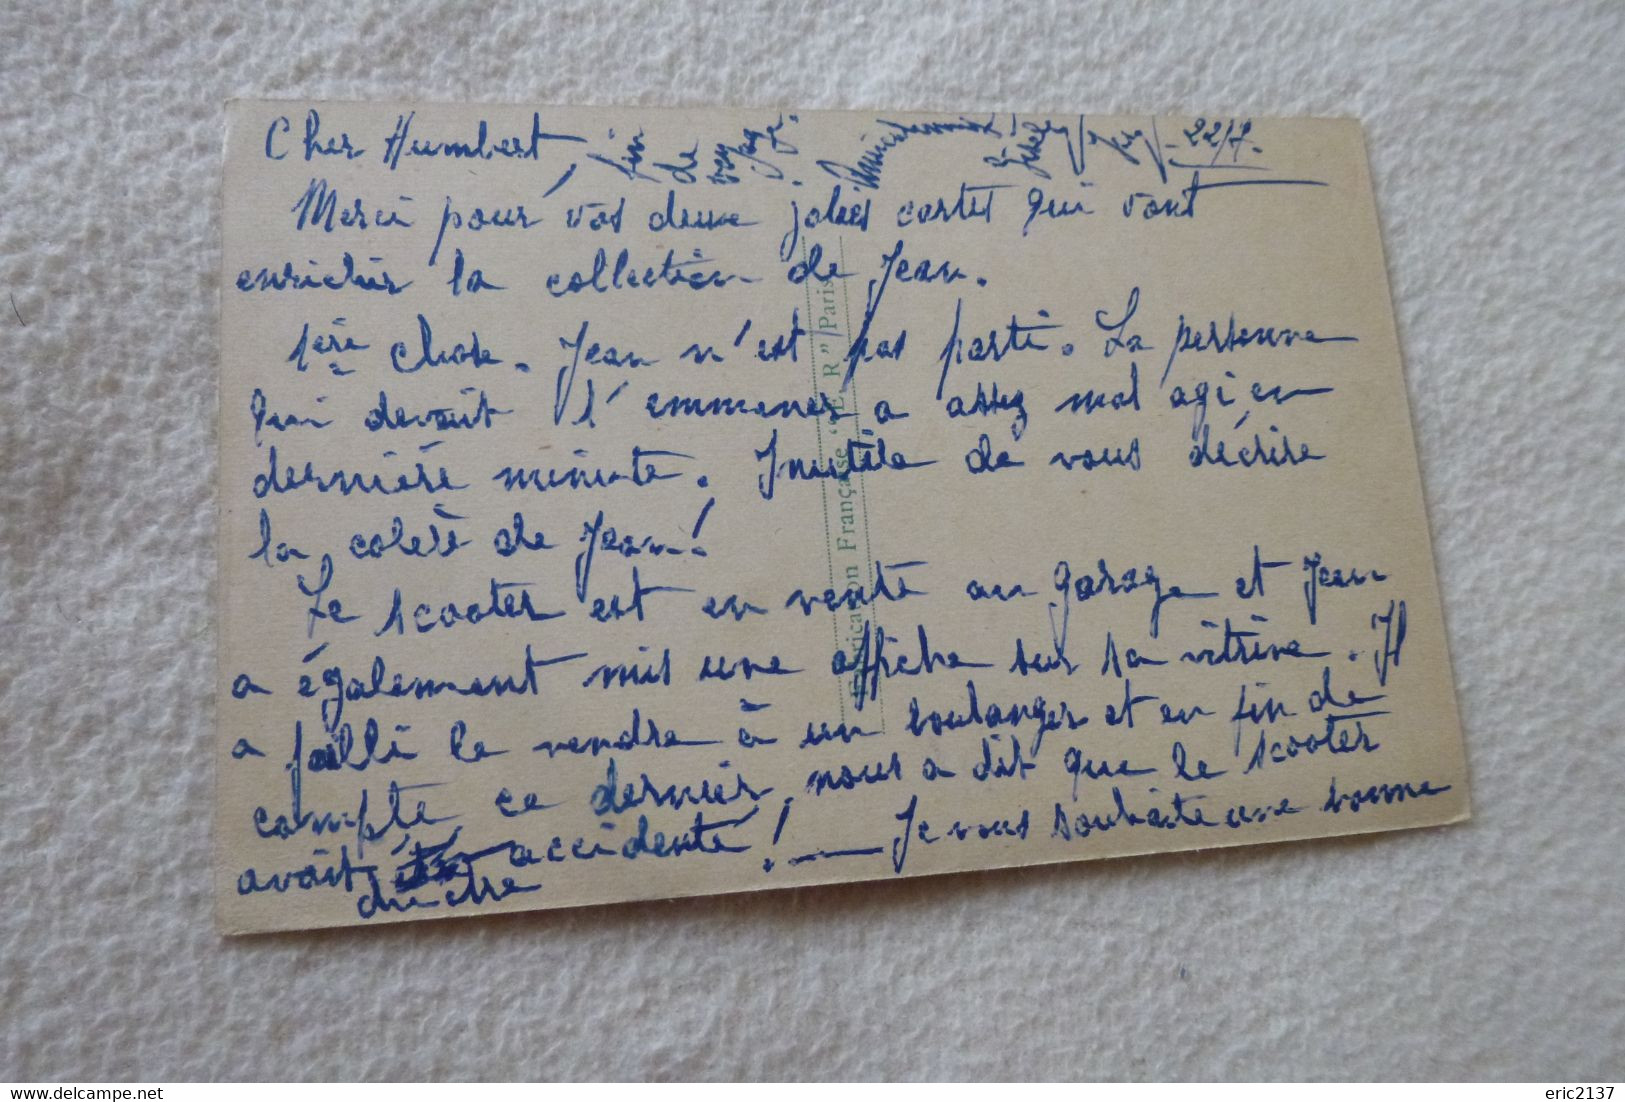 Cher Humbert,
22/7.
Merci pour vos deux jolies cartes qui vont
enrichir la collection de Jean.
1ère chose. Jean n'est pas parti. La personne
qui devait l'emmener a assez mal agi en
dernière minute. Inutile de vous décrire
la colère de Jean!
Le scooter est en vente au garage et Jean
a également mis une affiche sur sa vitrine. Il
a failli le vendre à un boulanger et en fin de
compte, ce dernier, nous a dit que le scooter
avait dû être accidenté! — Je vous souhaite une bonne
fin
de
voyage.
Fabrication Française "E. R" Paris
delcampe.net
eric2137